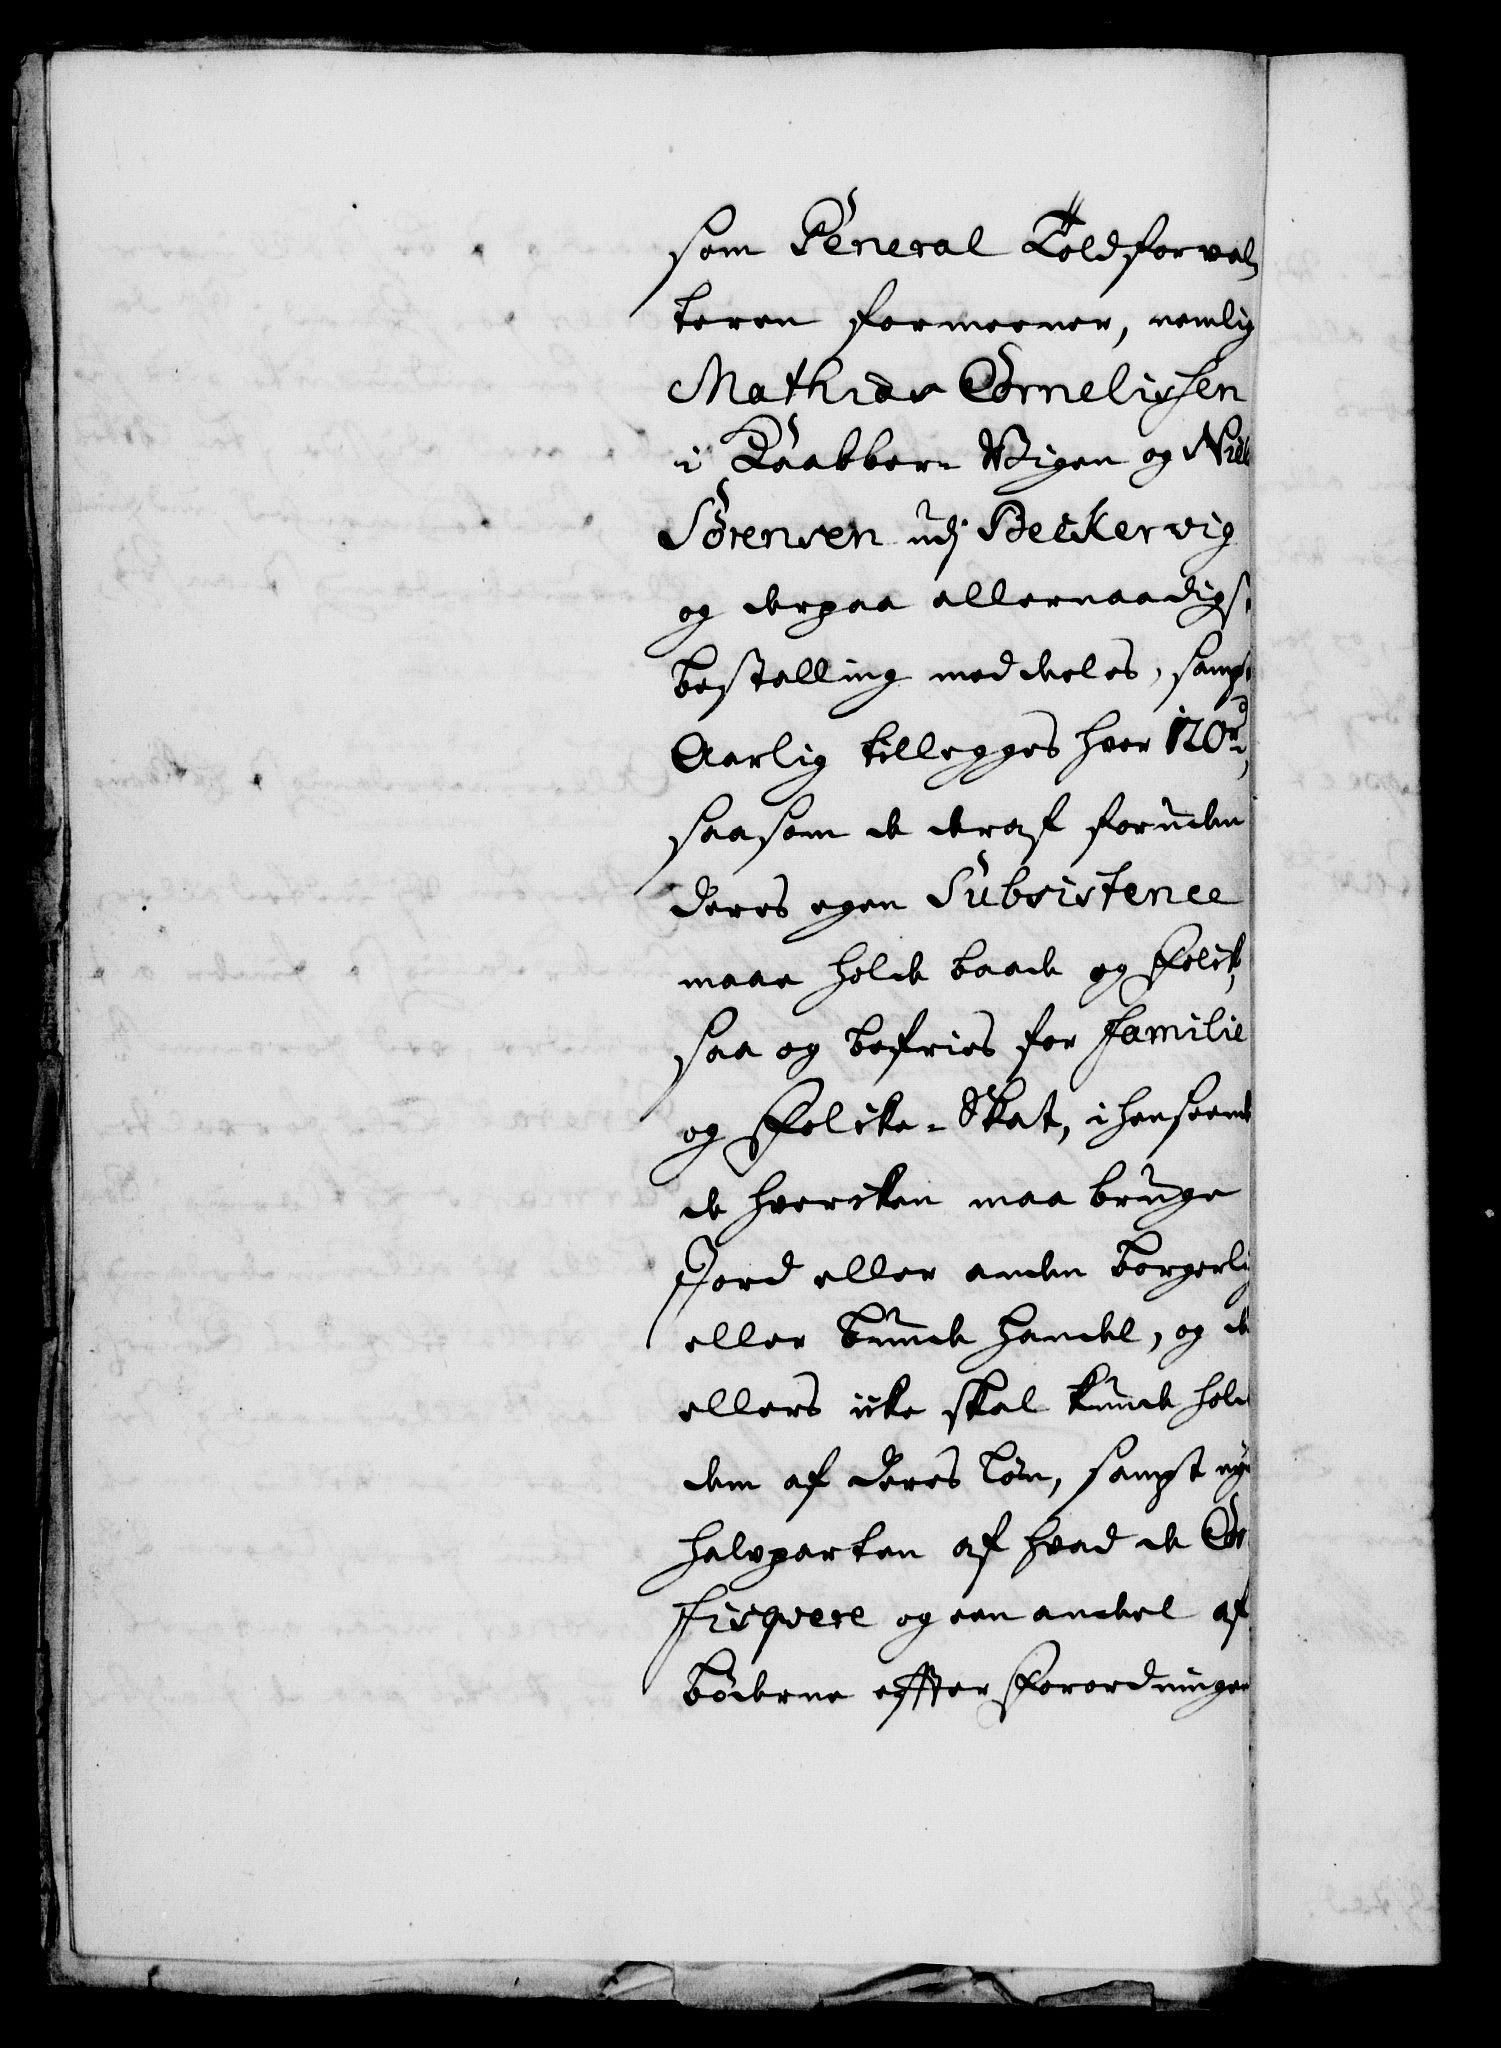 som General Toldforval¬
teren formeener, nemlig
Mathias Cornelissen
i Kaabber-Vigen og Niels
Sørensen udj Beiskervig
og derpaa allernaadigst
bestalling meddeeles, sampt
Aarlig tillegges hver 120 rd,
saasom de deraf foruden
deres egen Subsistence
maae holde baade og Folck,
saa og befries for Familie
og Folcke-Skat, i henseende
de hvercken maa bruge
Jord eller anden borgerlig
eller bunde handel, og de
ellers icke skal kunde holde
dem af deres løn, sampt nyde
halvparten af hvad de Con
fisqvere og een andeel af
bøderne effter Forordningen